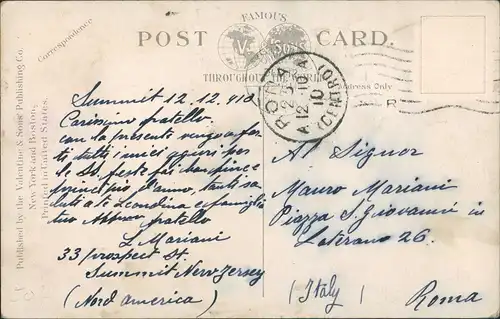 FAMOUS
POST CARD.
V & Sons
THROUGHOUT
Correspondence
Address Only
ROMA
(CENTRO)
12 10
10
R
Published by the Valentine & Sons' Publishing Co.
New York and Boston.
Printed in United States.
Summit 12. 12. 910
Carissimo fratello.
con la presente vengo a far
ti tutti i miei auguri per
le SS. feste fai buon fine e
principio d'anno, tanti sa
luti a te Leondina e famiglia
tuo fratello
L Mariani
33 prospect St.
Summit New Jersey
(Nord america)
Al Signor
Mauro Mariani
Piazza S. Giovanni in
Laterano 26.
(Italy)
Roma